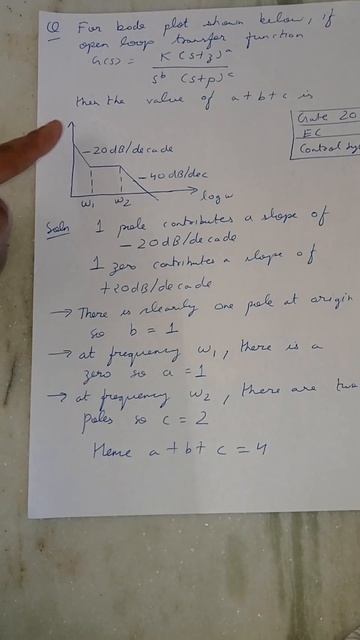 Q For bode plot shown below, if
open loop transfer function
G(s) = K (s+z)^a
s^b (s+p)^c
then the value of a+b+c is
Gate 20
EC
Control sy
-20dB/decade
-40dB/dec
ω1 ω2 log ω
Soln 1 pole contributes a slope of
-20dB/decade
1 zero contributes a slope of
+20dB/decade
→ There is clearly one pole at origin
so b = 1
→ at frequency ω1, there is a
zero so a = 1
→ at frequency ω2, there are two
poles so c = 2
Hence a+b+c = 4